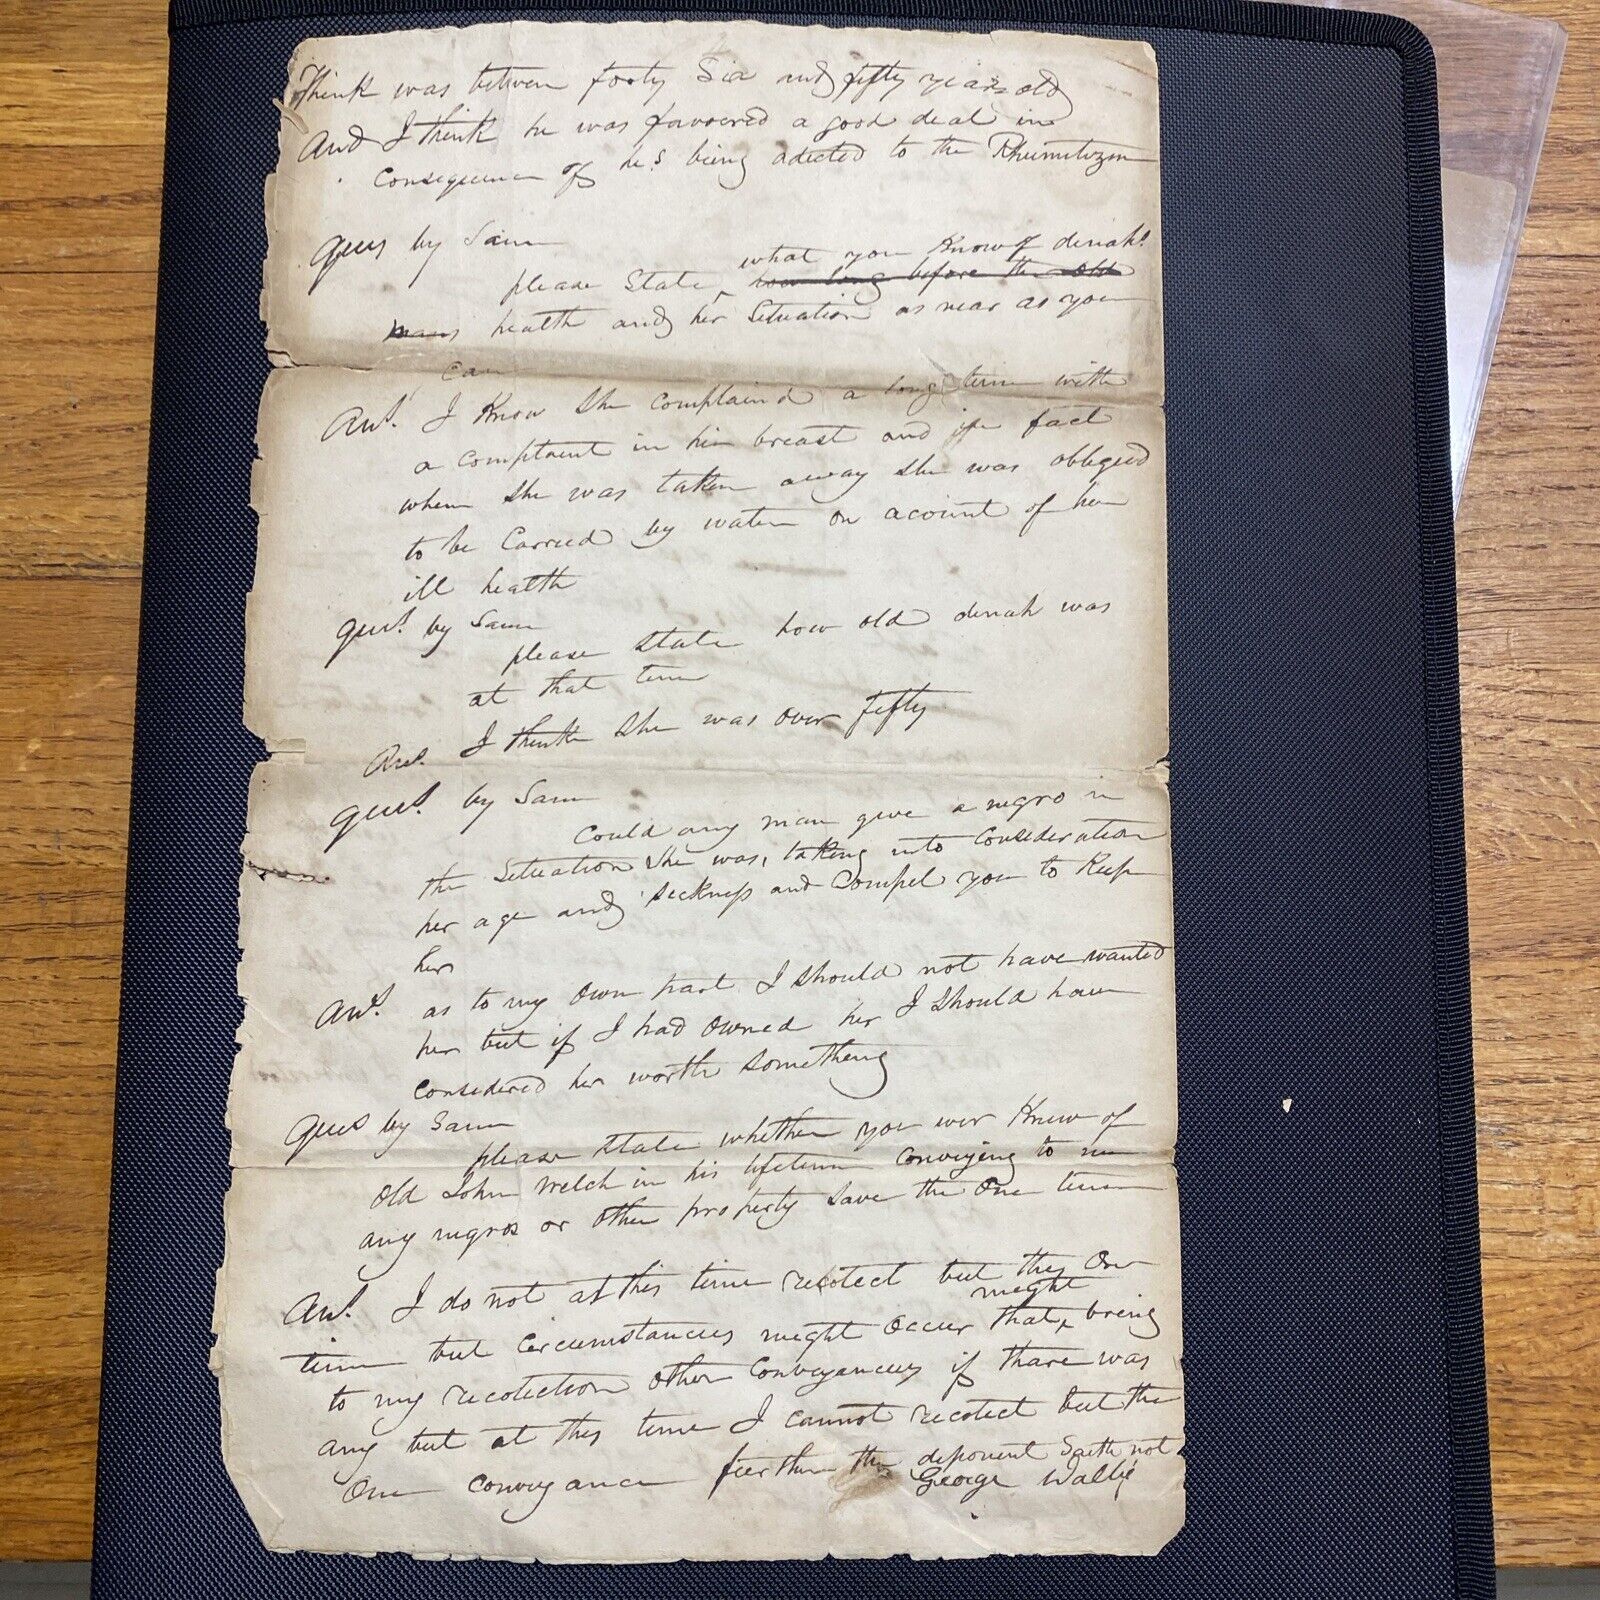 think was between forty Six and fifty years old
And I think he was favoured a good deal in
Consequence of his being adicted to the Rhumitizm
Ques by Same
what you Know of dinahs
please State how long before the old
mans health and her Situation as near as you
can
Ans. I Know She complaind a long time with
a complaint in her breast and in fact
when She was taken away She was obbliged
to be Carried by water on acount of her
ill health
Ques. by Same
please State how old dinah was
at that time
Ans. I think She was over fifty
Ques. by Same
Could any man give a negro in
the Situation She was, taking into Consideration
her age and Sickness and Compel you to Keep
her
Ans. as to my own part I Should not have wanted
her but if I had owned her I Should have
Considered her worth Something
Ques by Same
please State whether you ever Knew of
old John Welch in his lifetime Conveying to me
any negros or other property Save the One time
Ans. I do not at this time recolect but the One
might
time but circumstances might occur that bring
to my recolection other Conveyances if thare was
any but at this time I cannot recolect but the
One conveyance further the deponent Saith not
George